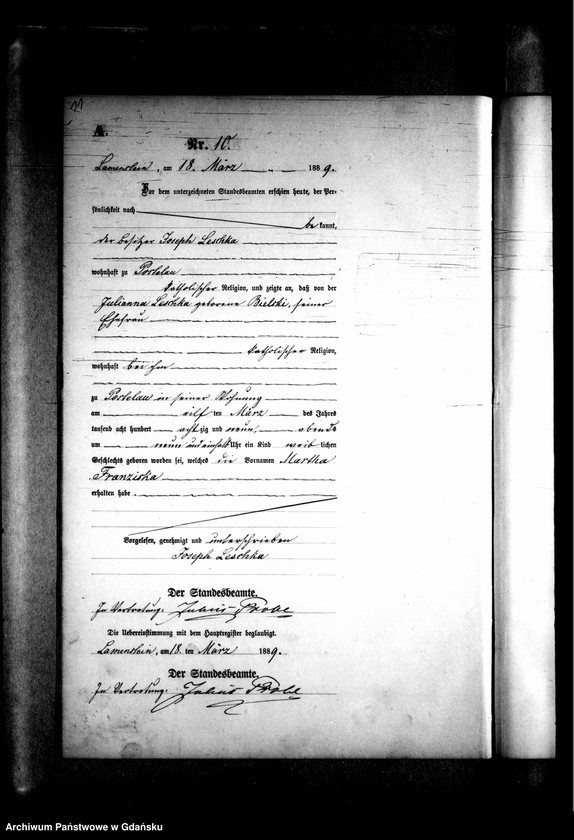 11
A.
Nr. 10.
Lamenstein, am 18. März 1889.
Vor dem unterzeichneten Standesbeamten erschien heute, der Per-
sönlichkeit nach
be kannt,
der Besitzer Joseph Leschka
wohnhaft zu Postelau
katholischer Religion, und zeigte an, daß von der
Julianna Leschka geborene Bielski, seiner
Ehefrau
katholischer Religion,
wohnhaft bei ihm
zu Postelau in seiner Wohnung
am eilf ten März des Jahres
tausend acht hundert acht zig und neun, abends
um neun und einhalb Uhr ein Kind weib lichen
Geschlechts geboren worden sei, welches die Vornamen Martha
Franziska
erhalten habe.
Vorgelesen, genehmigt und unterschrieben
Joseph Leschka
Der Standesbeamte.
In Vertretung: Julius Probe
Die Uebereinstimmung mit dem Hauptregister beglaubigt.
Lamenstein, am 18. ten März 1889.
Der Standesbeamte.
In Vertretung: Julius Probe
Archiwum Państwowe w Gdańsku